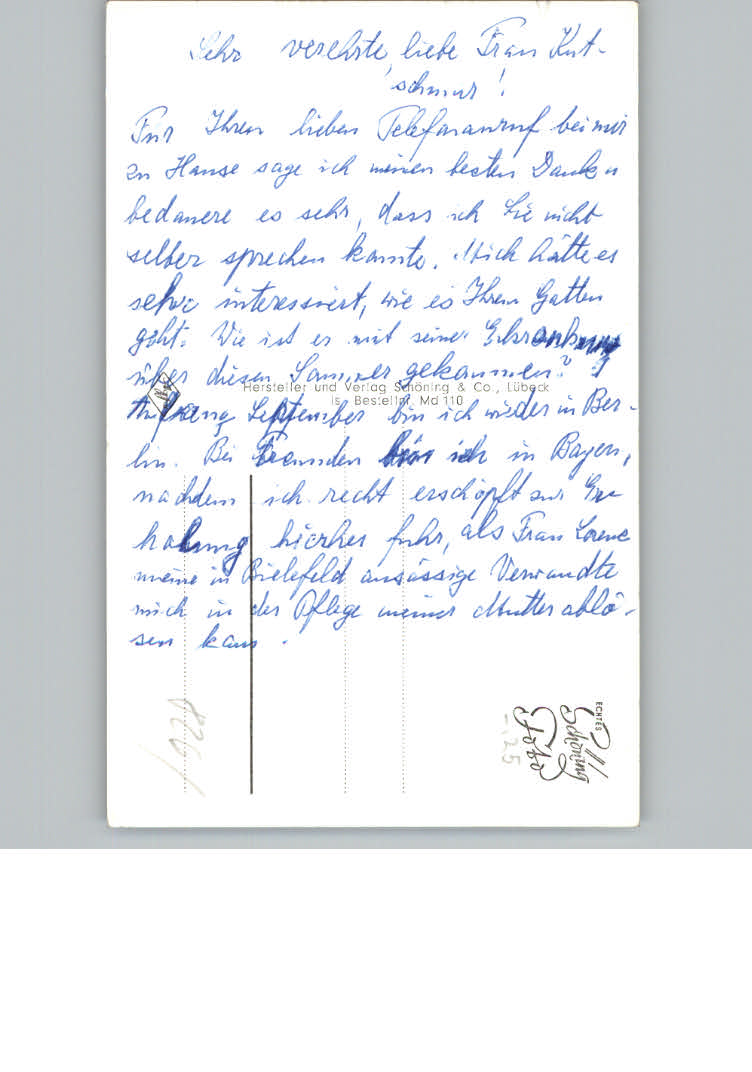 Sehr verehrte, liebe Frau Kut-
schmur!
Für Ihren lieben Telefonanruf bei mir
zu Hause sage ich meinen besten Dank u
bedauere es sehr, dass ich Sie nicht
selber sprechen konnte. Mich hätte es
sehr interessiert, wie es Ihrem Gatten
geht. Wie ist er mit seiner Erkrankung
über diesen Sommer gekommen?
Hersteller und Verlag Schöning & Co., Lübeck
Bestellnr. Md 110
Anfang September bin ich wieder in Ber-
lin. Bei Freunden bin ich in Bayern,
nachdem ich recht erschöpft zur Er-
holung hierher fuhr, als Frau Lorenz
meine in Bielefeld ansässige Verwandte
mich in der Pflege meiner Mutter ablö-
sen kam.
ECHTES
Schöning
Foto
-.25